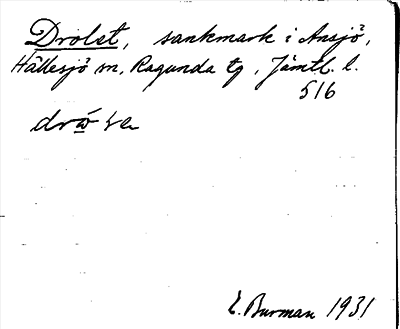 Drolet, sankmark i Ansjö,
Hällesjö sn, Ragunda tg, Jämtl. l.
516
E. Burman 1931